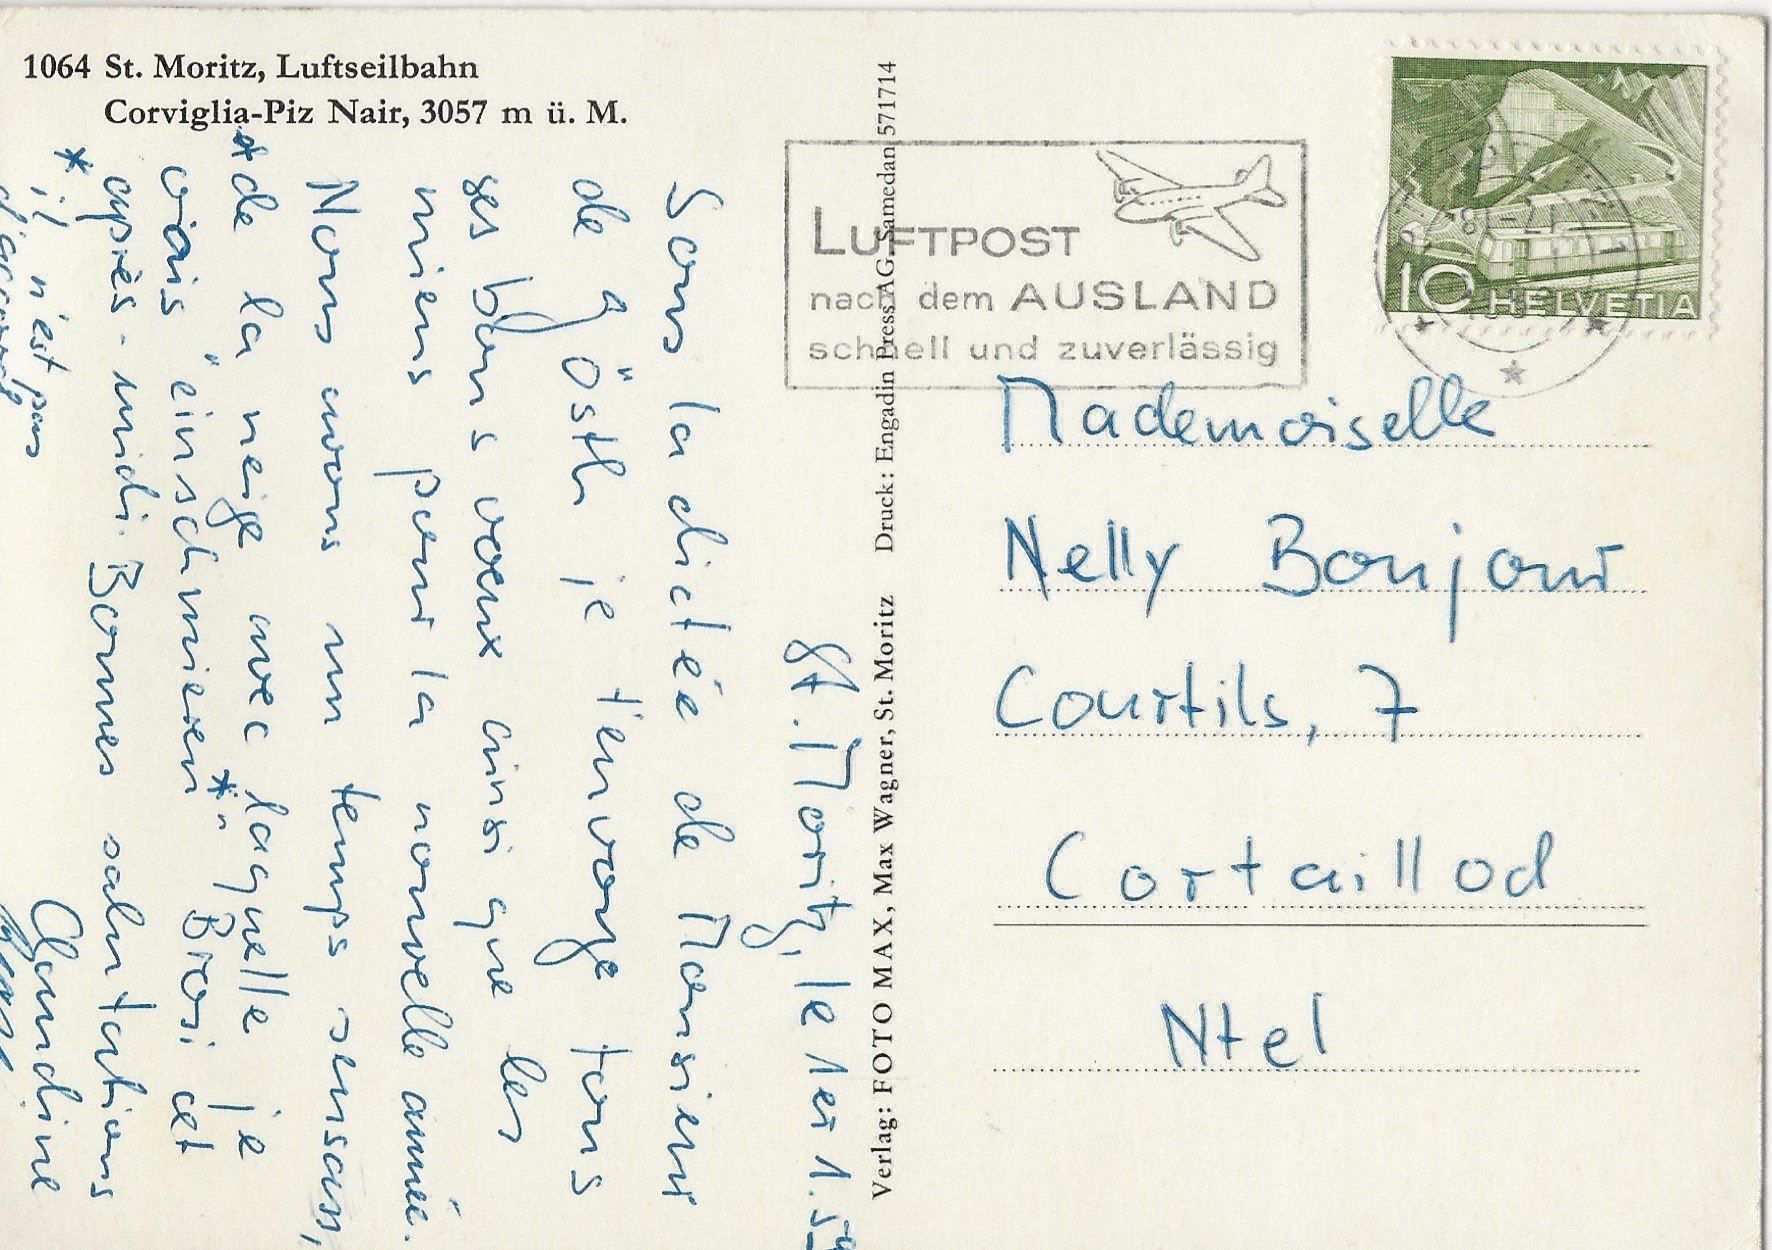 1064 St. Moritz, Luftseilbahn
Corviglia-Piz Nair, 3057 m ü. M.
St. Moritz, le 1er 1. 59
Sous la dictée de Monsieur
de G östli je t'envoye tous
ses bons voeux ainsi que les
miens pour la nouvelle année.
Nous avons un temps sensass,
*de la neige avec laquelle je
vais "einschmieren*" Brosi cet
après-midi. Bonnes salutations
* il n'est pas
d'accord
Claudine
Verlag: FOTO MAX, Max Wagner, St. Moritz Druck: Engadin Press AG. Samedan 571714
LUFTPOST
nach dem AUSLAND
schnell und zuverlässig
10 HELVETIA
Mademoiselle
Nelly Bonjour
Courtils, 7
Cortaillod
Ntel